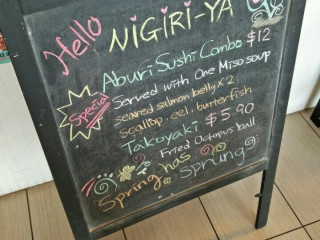 Hello NiGiRi-YA
Aburi Sushi Combo $12
Special
Served with One Miso soup
seared salmon belly x 2,
scallop, eel, butterfish
Takoyaki $5.90
Fried Octopus ball
Spring has sprung